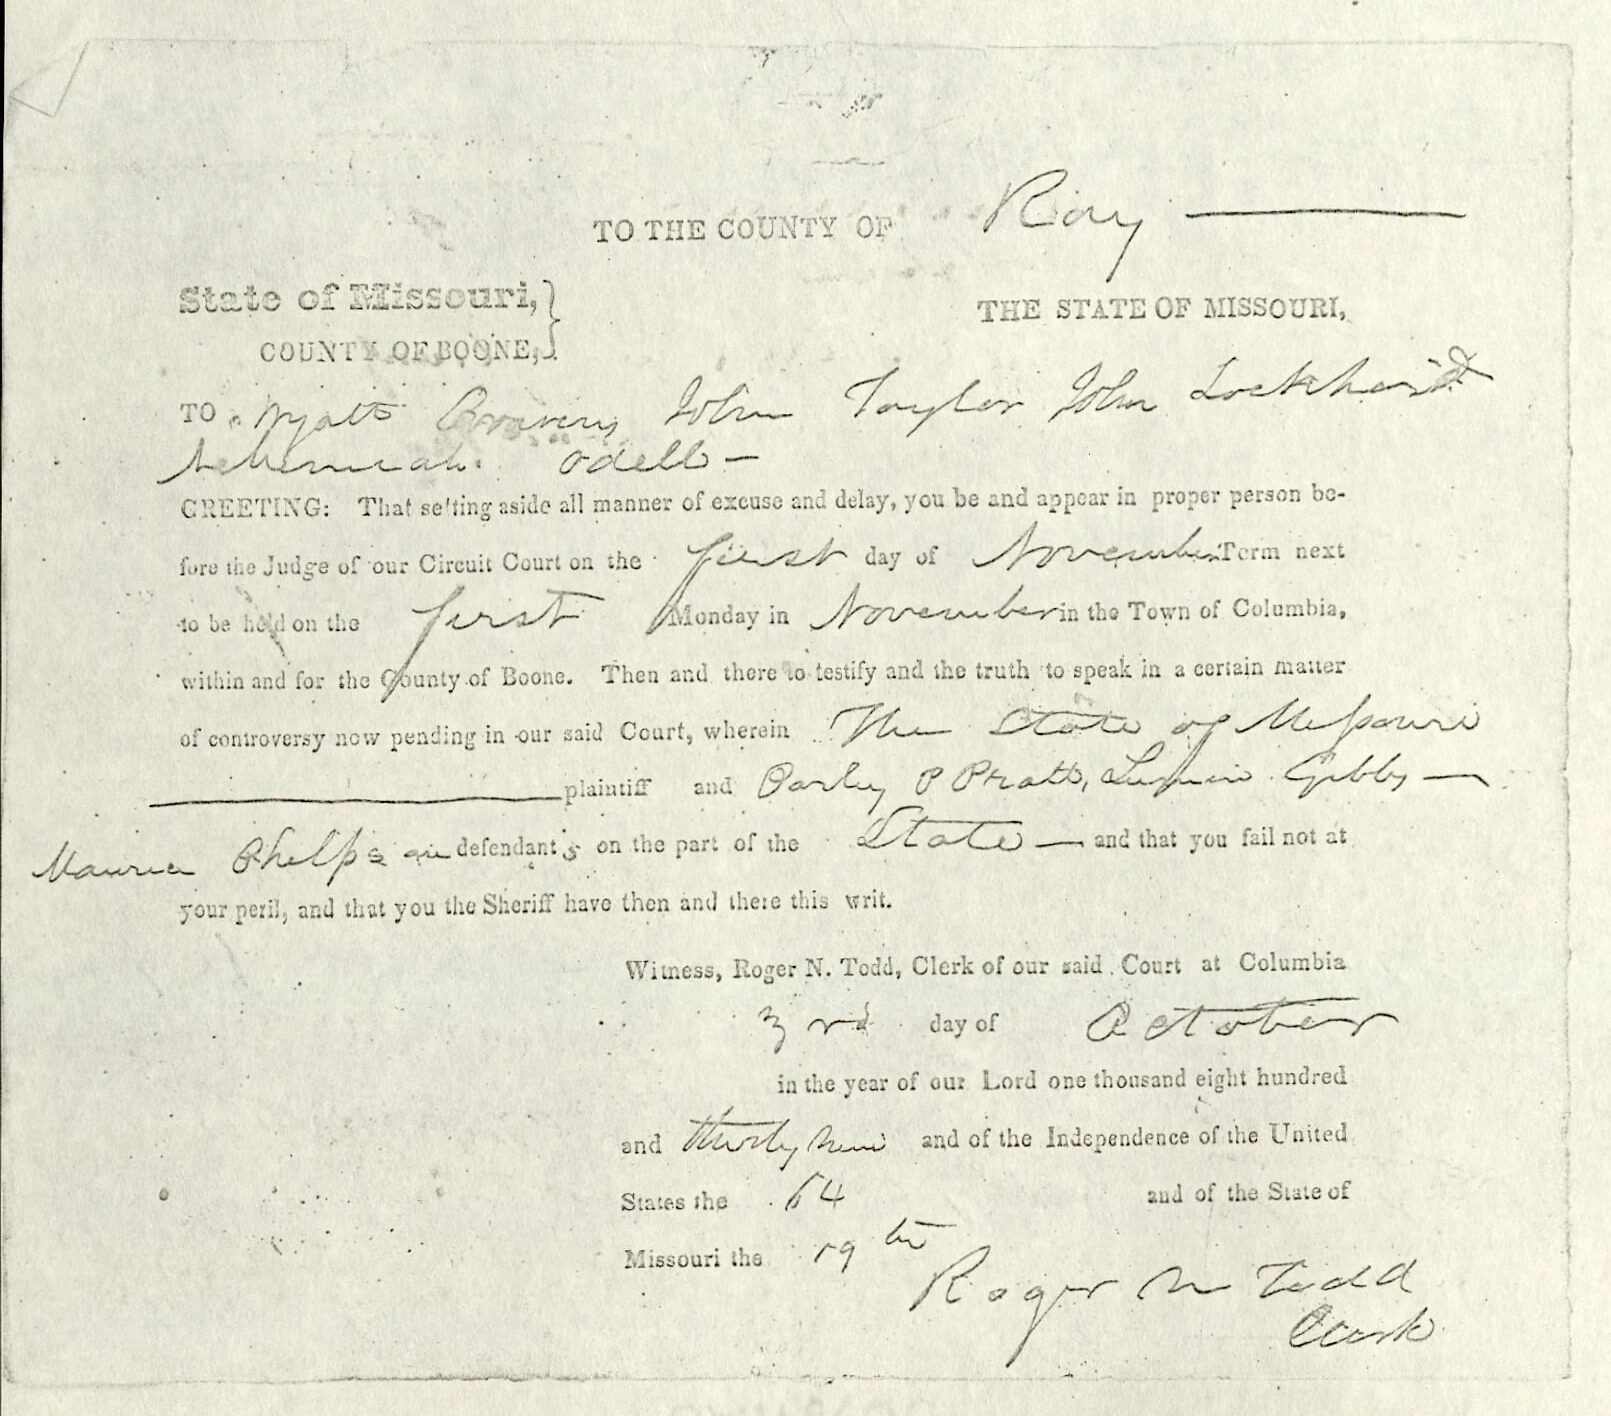 TO THE COUNTY OF Ray
State of Missouri,
COUNTY OF BOONE,
THE STATE OF MISSOURI,
TO Wyatt Cravens John Taylor John Lockhart
Nehemiah Odell
GREETING: That setting aside all manner of excuse and delay, you be and appear in proper person be-
fore the Judge of our Circuit Court on the first day of November Term next
to be held on the first Monday in November in the Town of Columbia,
within and for the County of Boone. Then and there to testify and the truth to speak in a certain matter
of controversy now pending in our said Court, wherein The State of Missouri
plaintiff and Parley P Pratt, Luman Gibbs
Maurice Phelps are defendants on the part of the State and that you fail not at
your peril, and that you the Sheriff have then and there this writ.
Witness, Roger N. Todd, Clerk of our said Court at Columbia
3rd day of October
in the year of our Lord one thousand eight hundred
and thirty nine and of the Independence of the United
States the 64 and of the State of
Missouri the 19th
Roger N Todd
Clerk